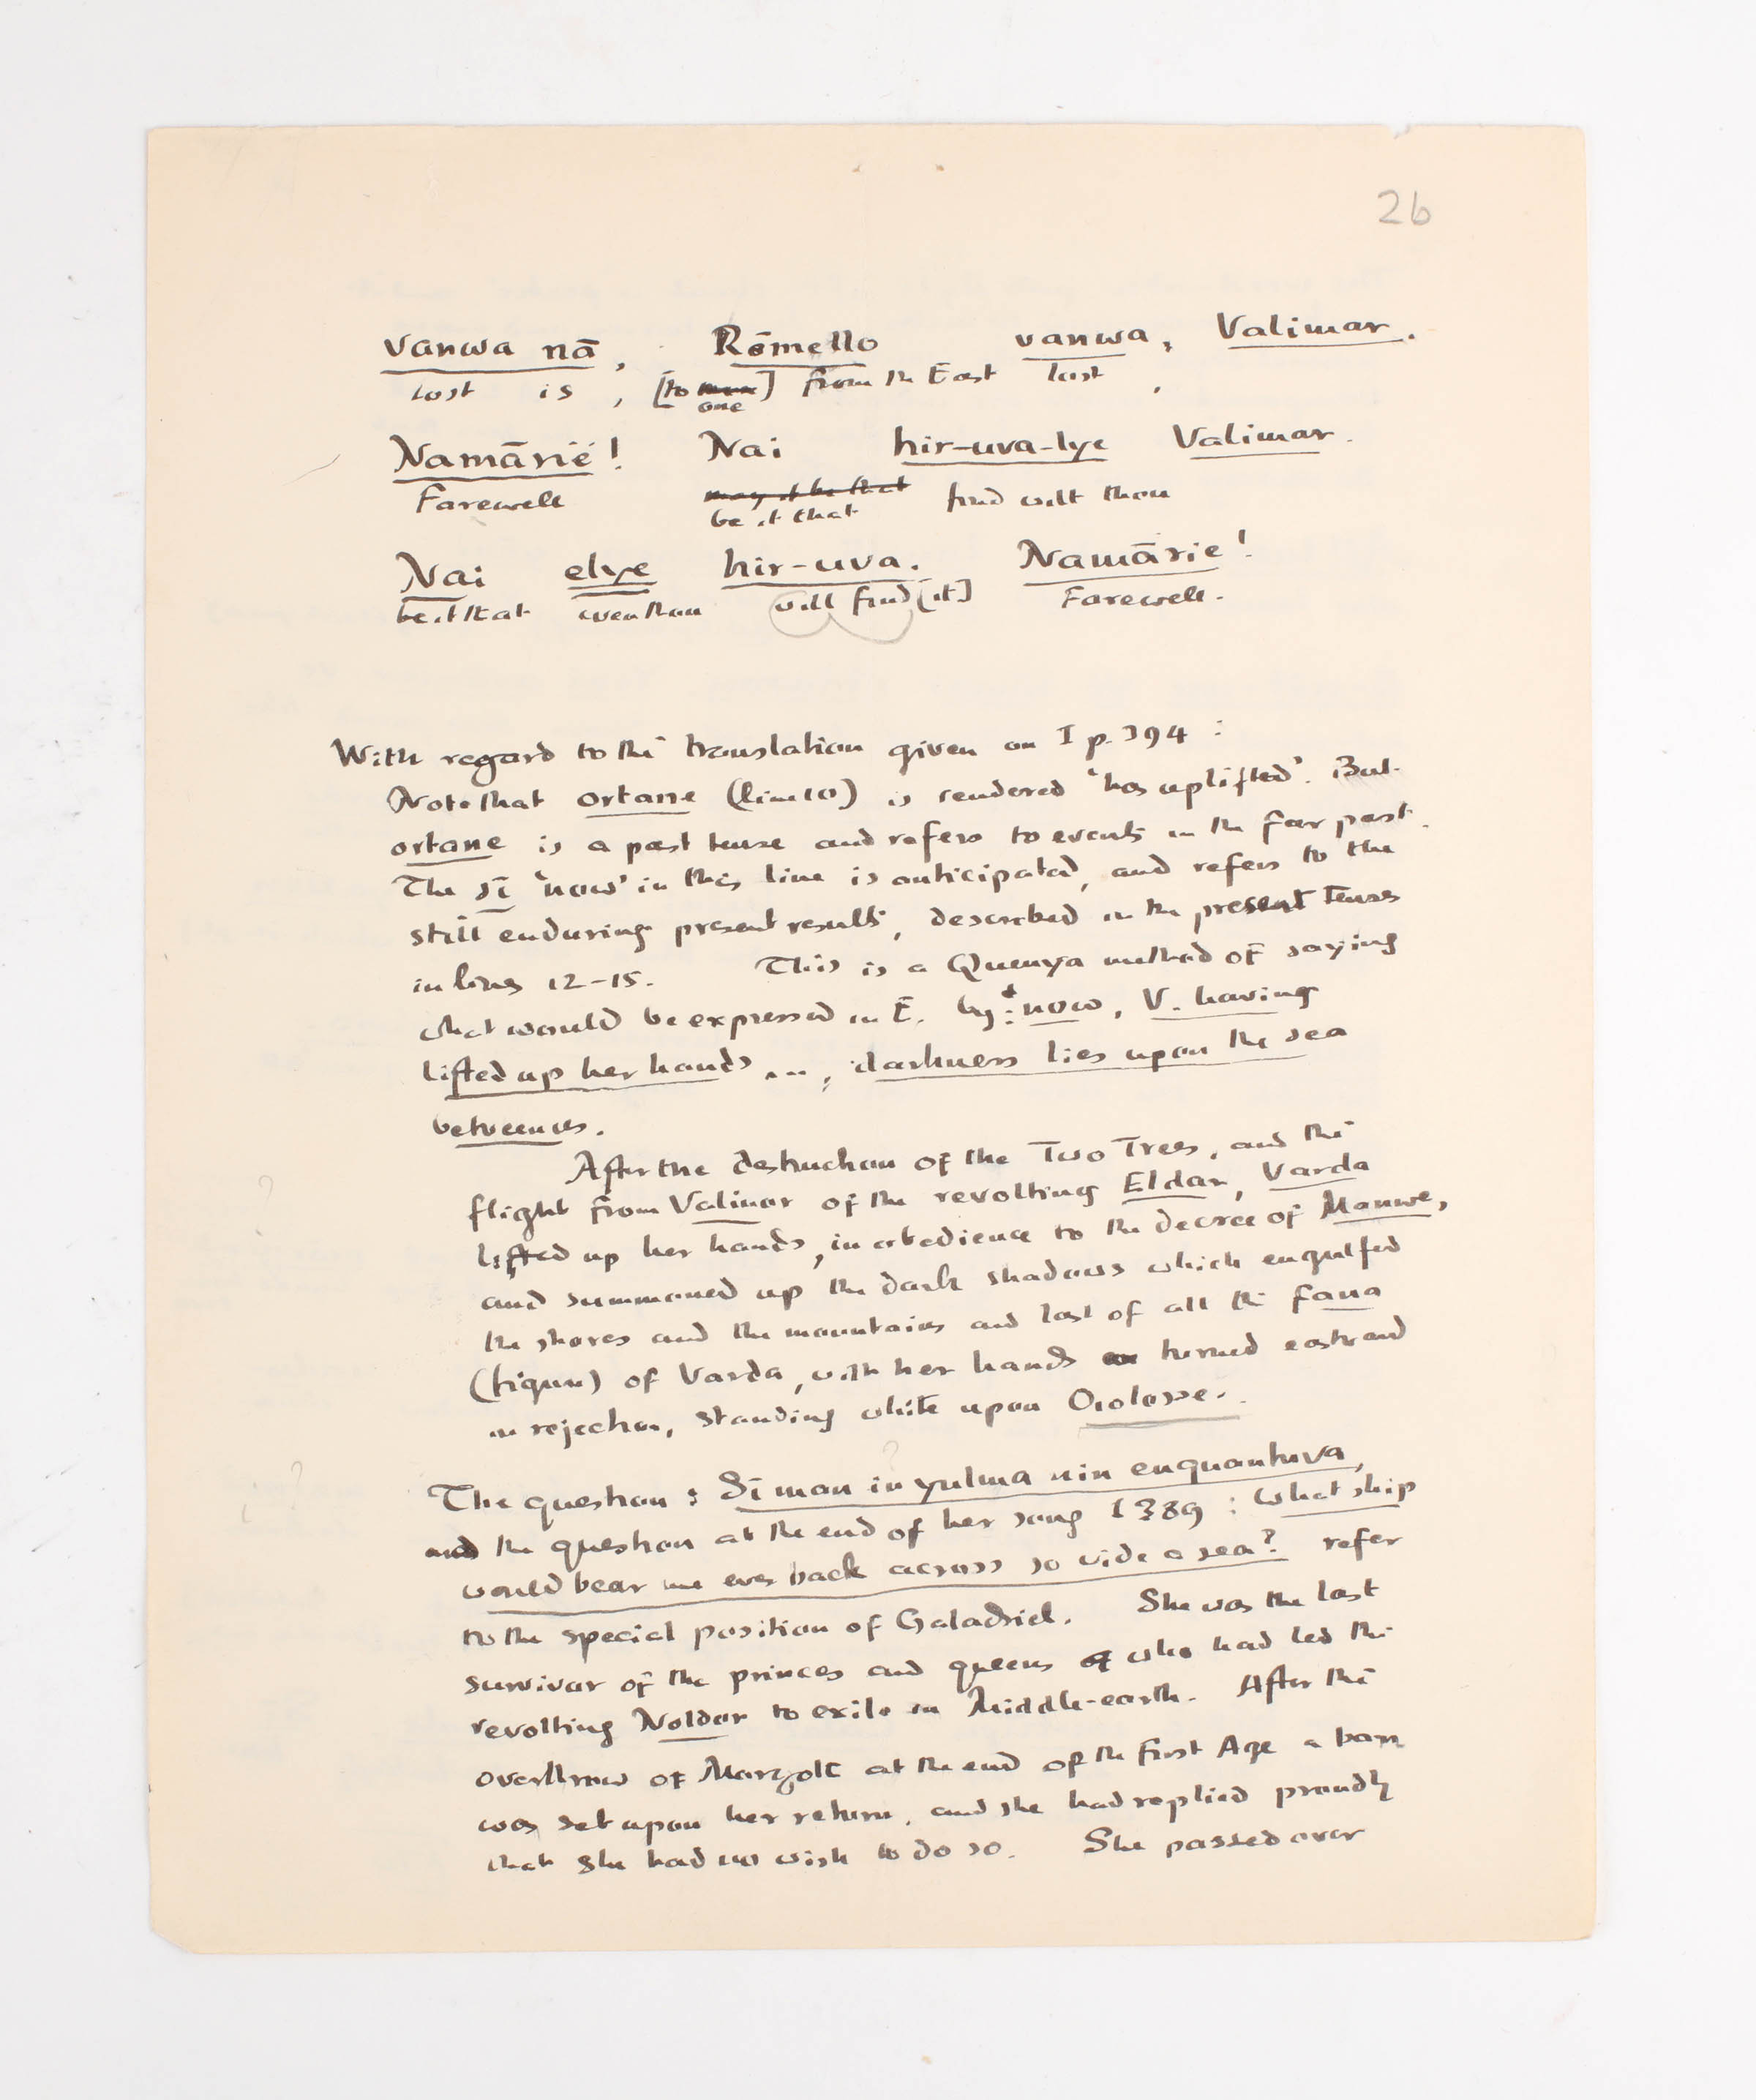 26
vanwa nā, Rōmello vanwa, Valimar.
lost is, [to one] from the East lost,
Namārië! Nai hir-uva-lye Valimar.
Farewell may it be that find wilt thou
be it that
Nai elye hir-uva. Namārie!
be it that even thou will find [it] Farewell.
With regard to the translation given on I p. 394:
Note that ortane (line 10) is rendered 'has uplifted'. But
ortane is a past tense and refers to events in the far past.
The sī 'now' in this line is anticipated, and refers to the
still enduring present results, described in the present tenses
in lines 12-15. This is a Quenya method of saying
what would be expressed in E. by: now, V. having
lifted up her hands ..., darkness lies upon the sea
between us.
After the destruction of the Two Trees, and the
flight from Valinor of the revolting Eldar, Varda
lifted up her hands, in obedience to the decree of Manwe,
and summoned up the dark shadows which engulfed
the shores and the mountains and last of all the fana
(figure) of Varda, with her hands turned eastward
in rejection, standing white upon Oiolosse.
The question: Sī man in yulma nin enquantuva,
and the question at the end of her song I 389: What ship
would bear me ever back across so wide a sea? refer
to the special position of Galadriel. She was the last
survivor of the princes and queens who had led the
revolting Noldor to exile in Middle-earth. After the
overthrow of Morgoth at the end of the First Age a ban
was set upon her return, and she had replied proudly
that she had no wish to do so. She passed over